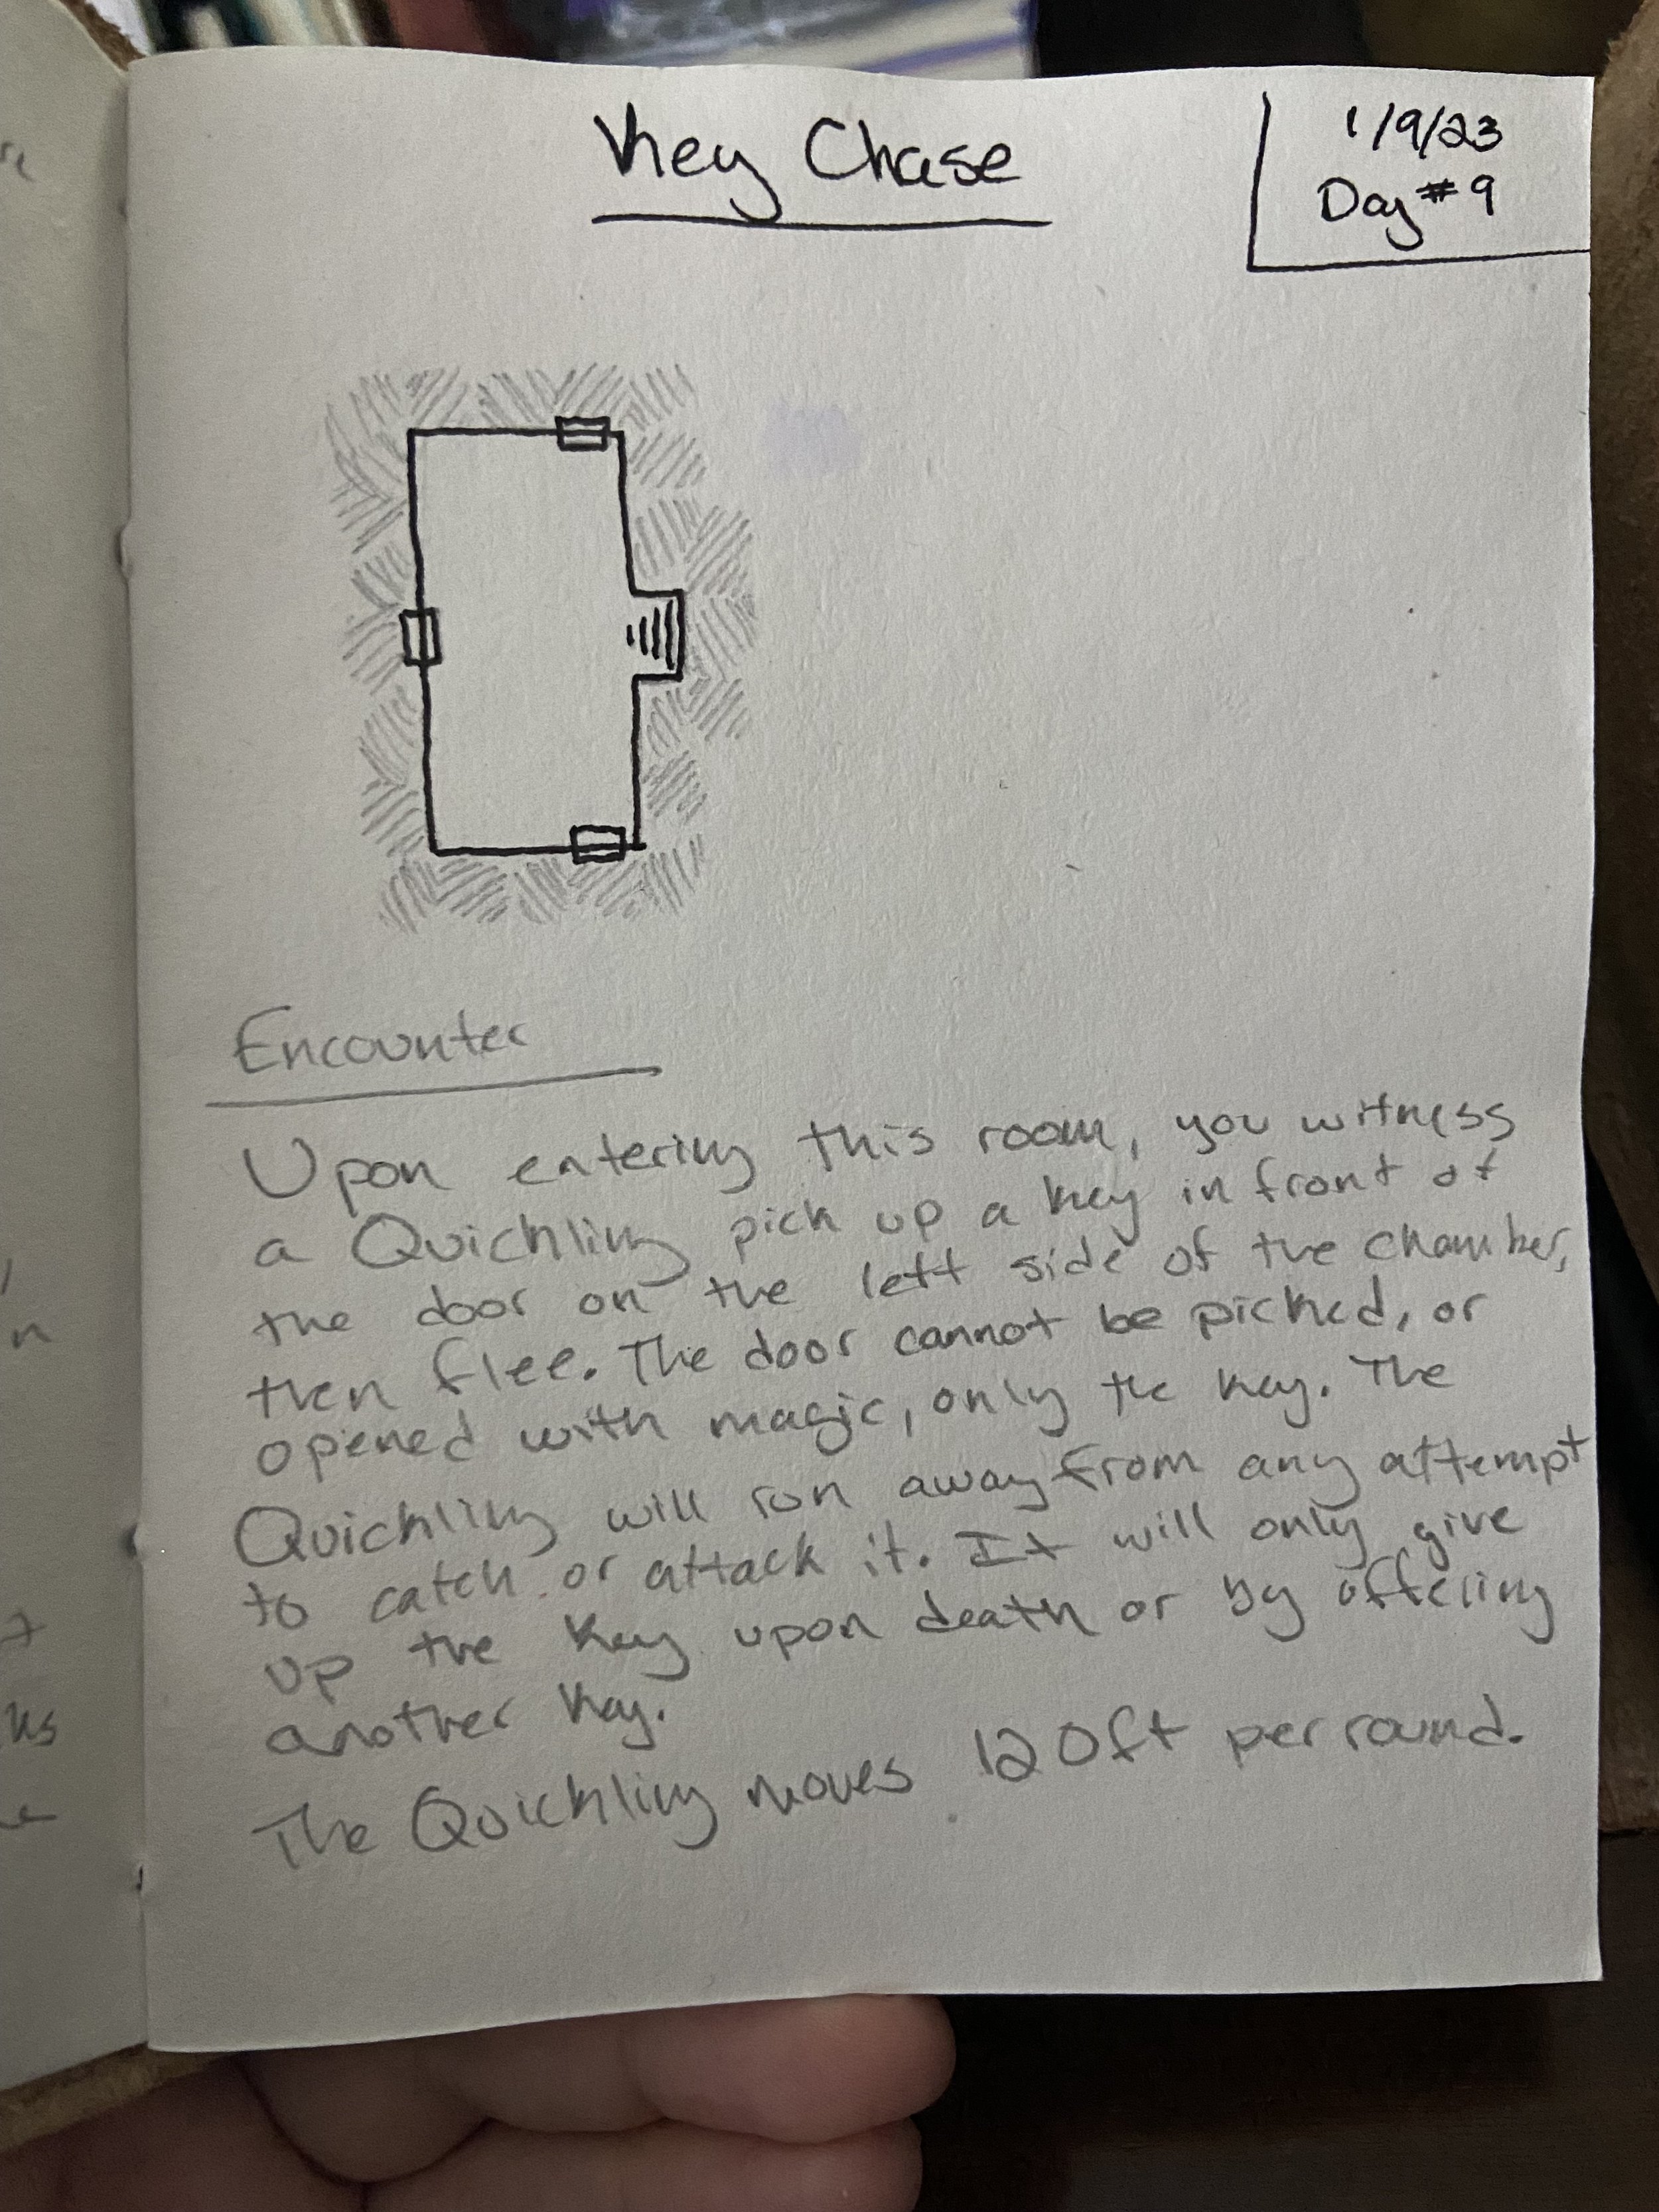 Key Chase
1/9/23
Day #9
Encounter
Upon entering this room, you witness
a Quickling pick up a key in front of
the door on the left side of the chamber,
then flee. The door cannot be picked, or
opened with magic, only the key. The
Quickling will run away from any attempt
to catch or attack it. It will only give
up the key upon death or by offering
another key.
The Quickling moves 120ft per round.